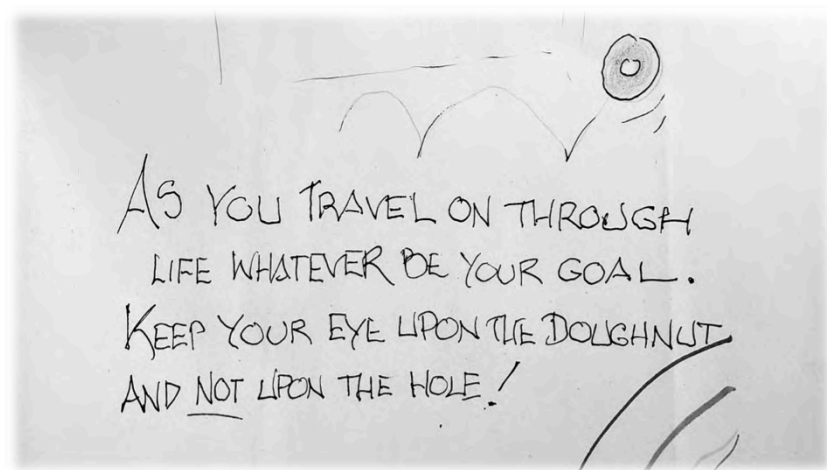 AS YOU TRAVEL ON THROUGH
LIFE WHATEVER BE YOUR GOAL.
KEEP YOUR EYE UPON THE DOUGHNUT
AND NOT UPON THE HOLE!